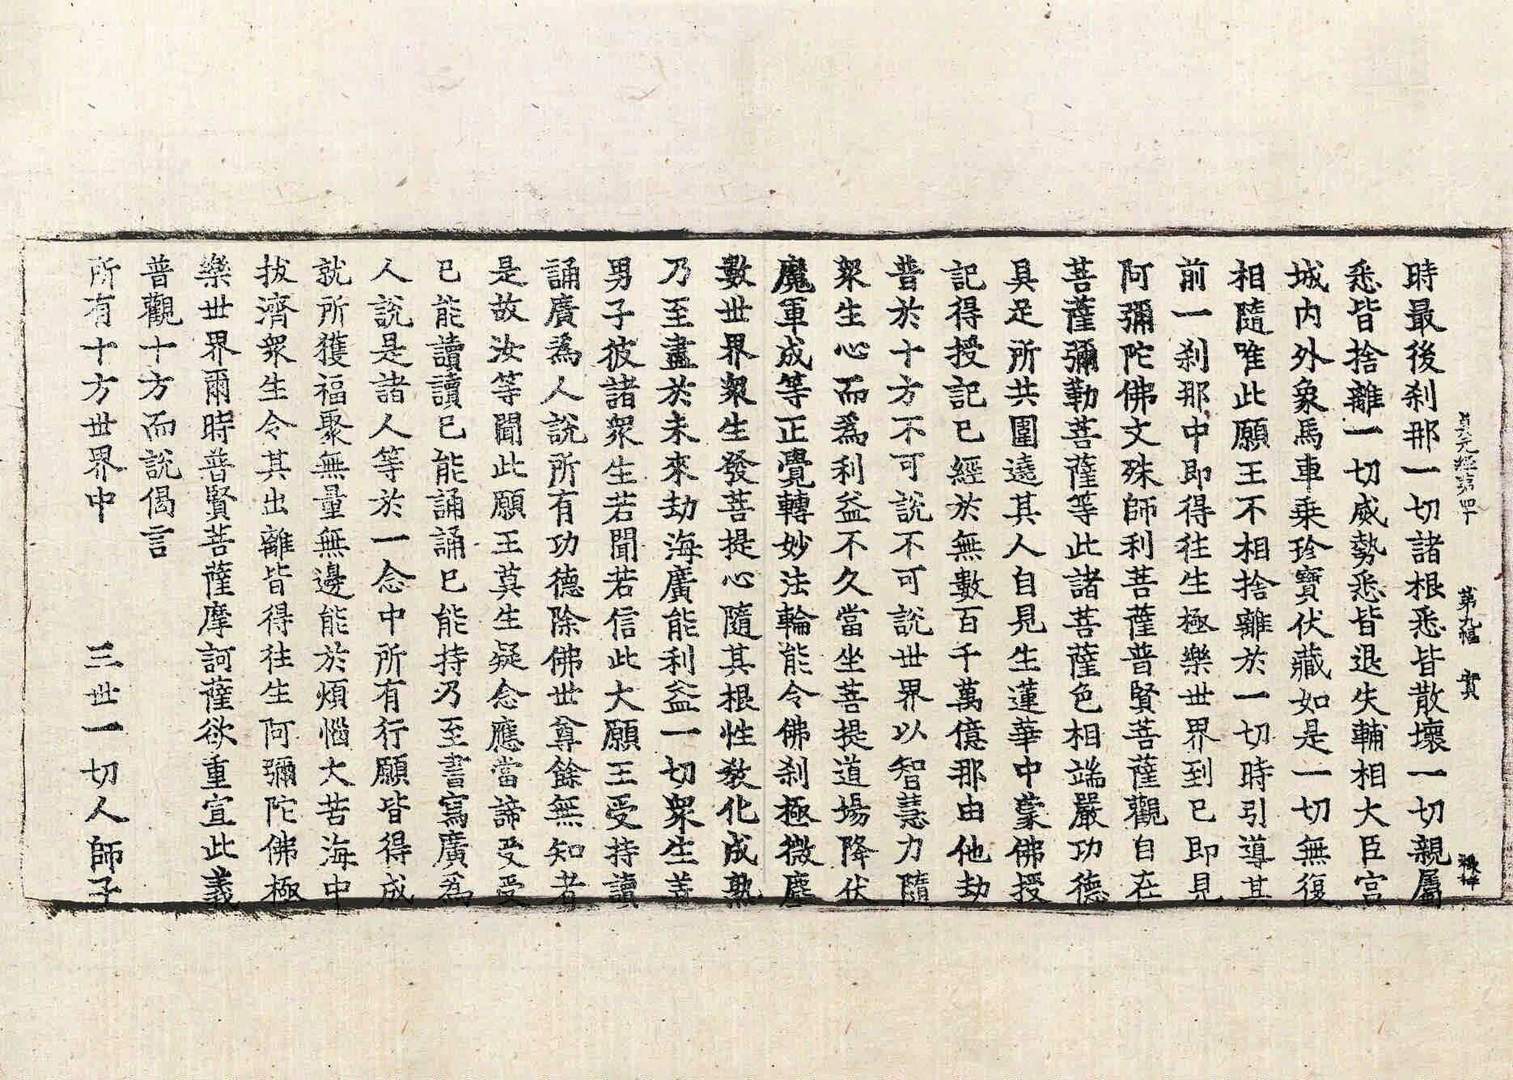 貞元經第四十　第九張　實
時最後刹那一切諸根悉皆散壞一切親屬
悉皆捨離一切威勢悉皆退失輔相大臣宮
城内外象馬車乗珍寶伏藏如是一切無復
相隨唯此願王不相捨離於一切時引導其
前一刹那中即得往生極樂世界到已即見
阿彌陀佛文殊師利菩薩普賢菩薩觀自在
菩薩彌勒菩薩等此諸菩薩色相端嚴功德
具足所共圍遶其人自見生蓮華中蒙佛授
記得授記已經於無數百千萬億那由他劫
普於十方不可說不可說世界以智慧力隨
衆生心而爲利益不久當坐菩提道場降伏
魔軍成等正覺轉妙法輪能令佛刹極微塵
數世界衆生發菩提心隨其根性教化成熟
乃至盡於未來劫海廣能利益一切衆生善
男子彼諸衆生若聞若信此大願王受持讀
誦廣爲人說所有功德除佛世尊餘無知者
是故汝等聞此願王莫生疑念應當諦受受
已能讀讀已能誦誦已能持乃至書寫廣爲
人說是諸人等於一念中所有行願皆得成
就所獲福聚無量無邊能於煩惱大苦海中
拔濟衆生令其出離皆得往生阿彌陀佛極
樂世界爾時普賢菩薩摩訶薩欲重宣此義
普觀十方而說偈言
所有十方世界中　三世一切人師子